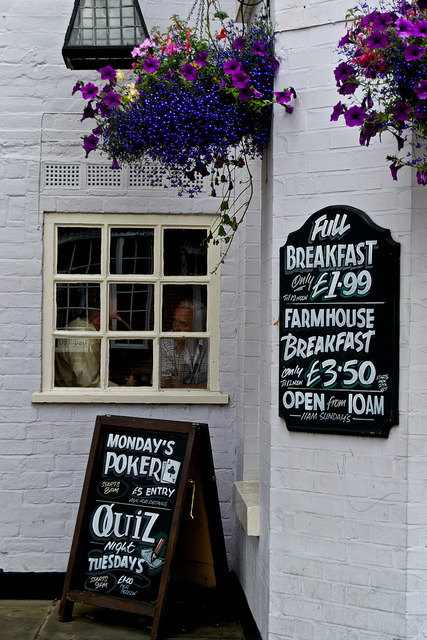 FULL
BREAKFAST
Only £1·99
Till 12 NOON
FARMHOUSE
BREAKFAST
Only £3·50
Till 12 NOON
OPEN from 10AM
11AM SUNDAYS
MONDAY'S
POKER
STARTS
8PM
£5 ENTRY
ASK FOR DETAILS
QUIZ
NIGHT
TUESDAYS
STARTS
9PM
£1·00
PER
PERSON